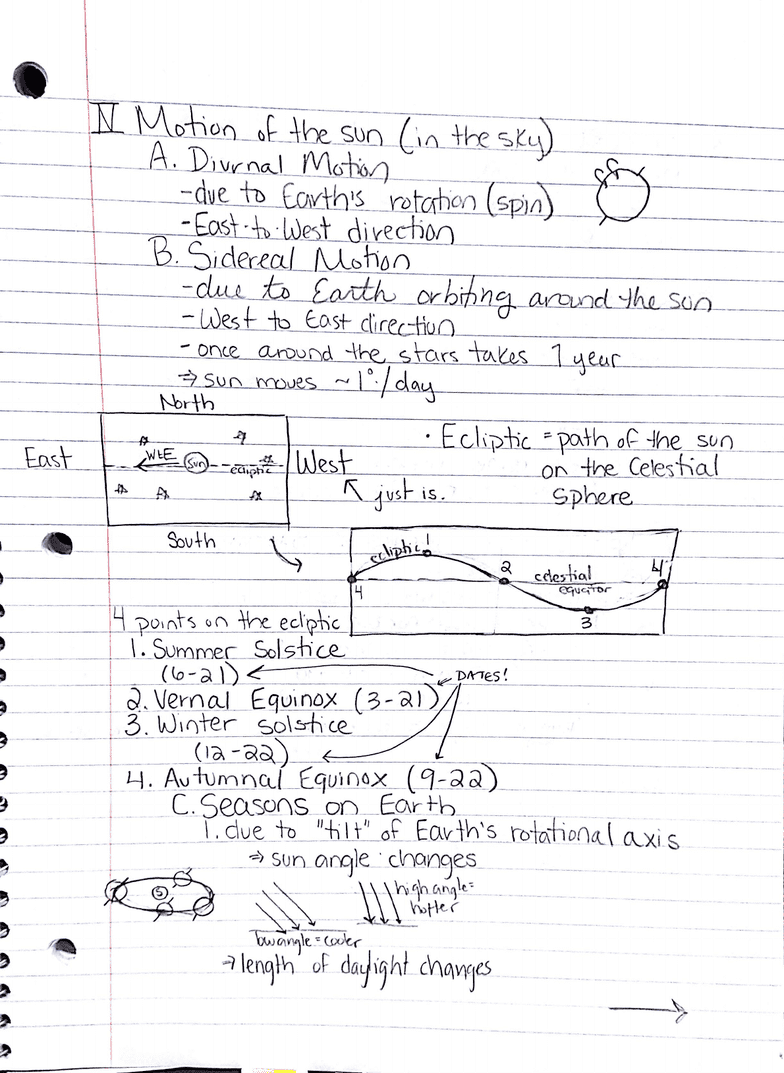 IV Motion of the sun (in the sky)
A. Diurnal Motion
-due to Earth's rotation (spin)
-East-to-West direction
B. Sidereal Motion
-due to Earth orbiting around the sun
-West to East direction
-once around the stars takes 1 year
⇒ sun moves ~1°/day
North
East
W→E
Sun
ecliptic
West
↖ just is.
South
• Ecliptic = path of the sun
on the Celestial
Sphere
ecliptic
1
2
celestial
equator
3
4
4
4 points on the ecliptic
1. Summer Solstice
(6-21)
DATES!
2. Vernal Equinox (3-21)
3. Winter solstice
(12-22)
4. Autumnal Equinox (9-22)
C. Seasons on Earth
1. due to "tilt" of Earth's rotational axis
⇒ sun angle changes
S
high angle=
hotter
low angle = cooler
→ length of daylight changes